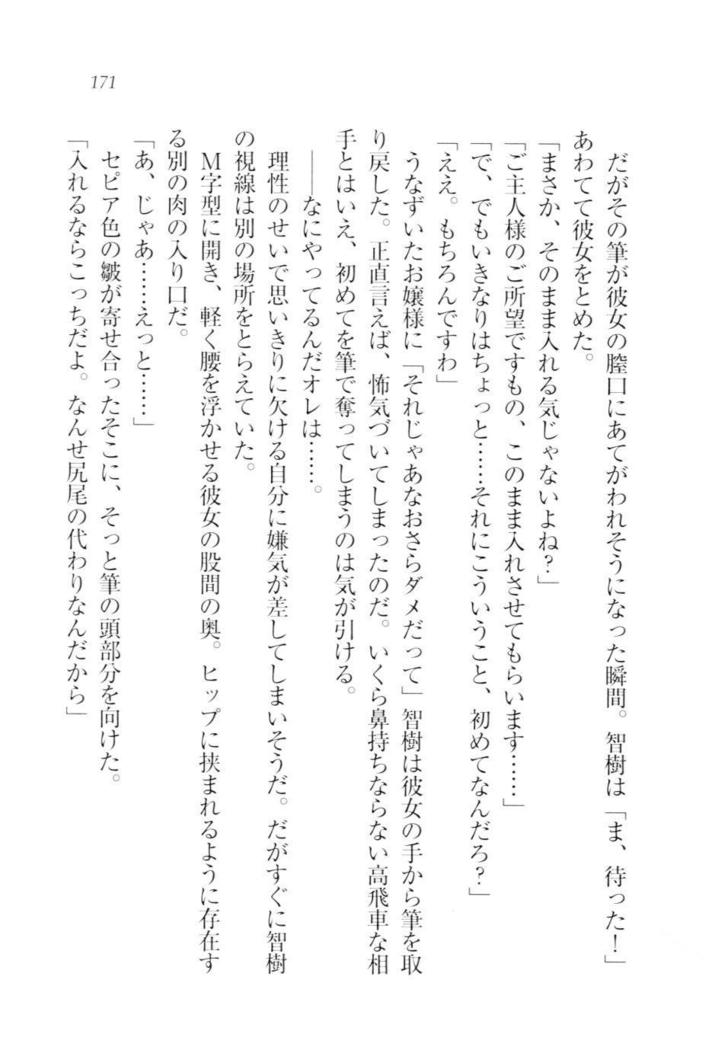 171
だがその筆が彼女の膣口にあてがわれそうになった瞬間。智樹は「ま、待った！」
あわてて彼女をとめた。
「まさか、そのまま入れる気じゃないよね？」
「ご主人様のご所望ですもの、このまま入れさせてもらいます……」
「で、でもいきなりはちょっと……それにこういうこと、初めてなんだろ？」
「ええ。もちろんですわ」
うなずいたお嬢様に「それじゃあなおさらダメだって」智樹は彼女の手から筆を取
り戻した。正直言えば、怖気づいてしまったのだ。いくら鼻持ちならない高飛車な相
手とはいえ、初めてを筆で奪ってしまうのは気が引ける。
――なにやってるんだオレは……。
理性のせいで思いきりに欠ける自分に嫌気が差してしまいそうだ。だがすぐに智樹
の視線は別の場所をとらえていた。
Ｍ字型に開き、軽く腰を浮かせる彼女の股間の奥。ヒップに挟まれるように存在す
る別の肉の入り口だ。
「あ、じゃあ……えっと……」
セピア色の皺が寄せ合ったそこに、そっと筆の頭部分を向けた。
「入れるならこっちだよ。なんせ尻尾の代わりなんだから」